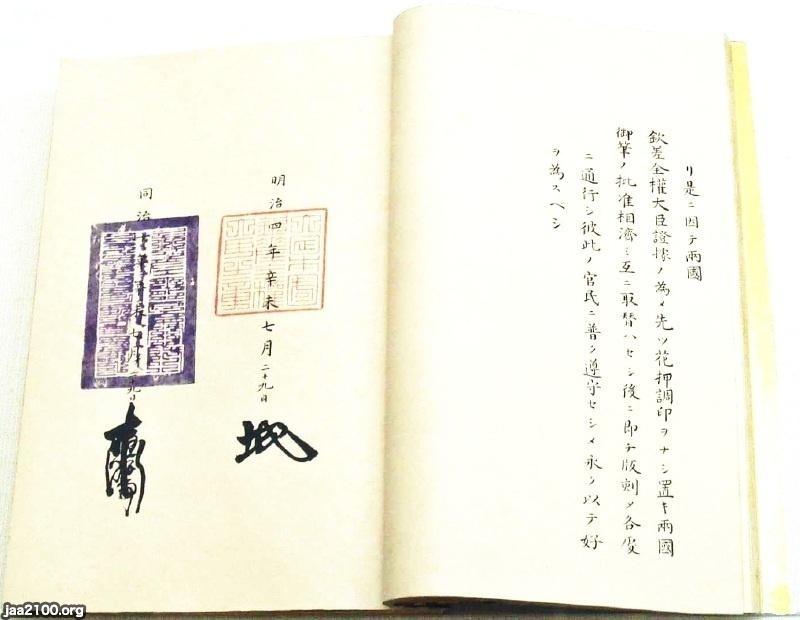 リ是ニ因テ兩國
欽差全權大臣證據ノ為メ先ツ花押調印ヲナシ置キ兩國
御筆ノ批准相濟ミ互ニ取替ハセシ後ニ即チ版刻メ各處
ニ通行シ彼此ノ官民ニ普ク遵守セシメ永ク以テ好
ヲ為スヘシ
明治四年辛未七月二十九日
同治 七月二十九日
jaa2100.org